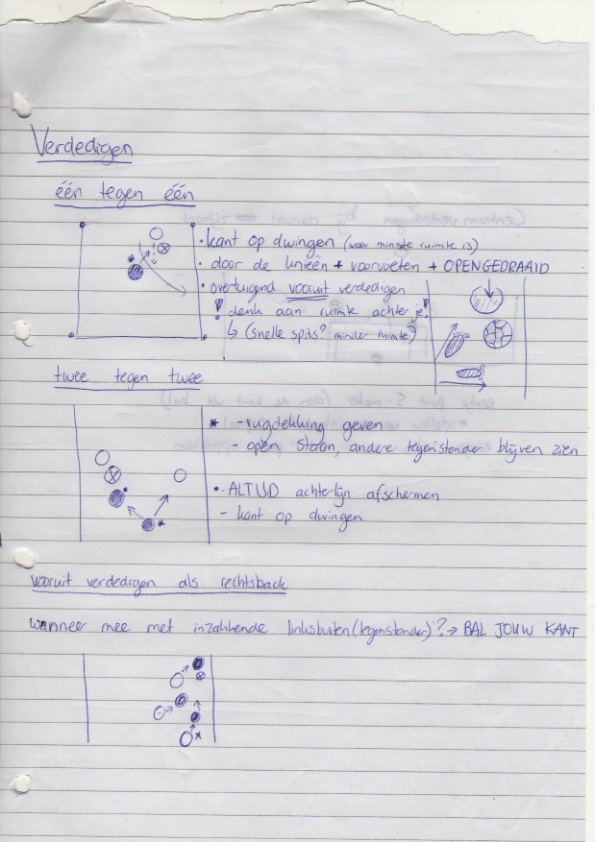 Verdedigen
één tegen één
• kant op dwingen (waar minste ruimte is)
• door de knieën + voorvoeten + OPENGEDRAAID
• overtuigend vooruit verdedigen
! denk aan ruimte achter je!
↳ (snelle spits? minder ruimte?)
twee tegen twee
* - rugdekking geven
- open staan, andere tegenstander blijven zien
• ALTIJD achterlijn afschermen
- kant op dwingen
vooruit verdedigen als rechtsback
wanneer mee met inzakkende linksbuiten (tegenstander)? → BAL JOUW KANT